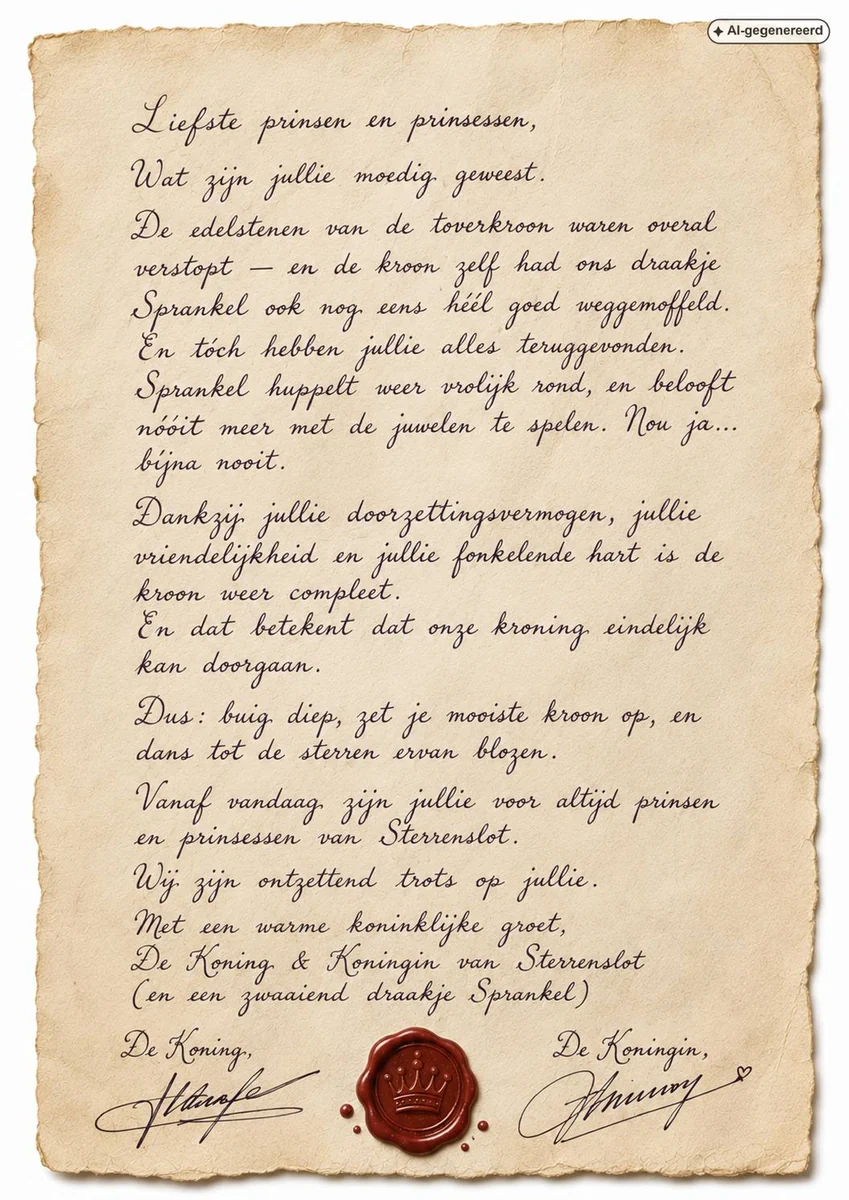 AI-gegenereerd
Liefste prinsen en prinsessen,
Wat zijn jullie moedig geweest.
De edelstenen van de toverkroon waren overal
verstopt — en de kroon zelf had ons draakje
Sprankel ook nog eens héél goed weggemoffeld.
En tóch hebben jullie alles teruggevonden.
Sprankel huppelt weer vrolijk rond, en belooft
nóóit meer met de juwelen te spelen. Nou ja...
bijna nooit.
Dankzij jullie doorzettingsvermogen, jullie
vriendelijkheid en jullie fonkelende hart is de
kroon weer compleet.
En dat betekent dat onze kroning eindelijk
kan doorgaan.
Dus: buig diep, zet je mooiste kroon op, en
dans tot de sterren ervan blozen.
Vanaf vandaag zijn jullie voor altijd prinsen
en prinsessen van Sterrenslot.
Wij zijn ontzettend trots op jullie.
Met een warme koninklijke groet,
De Koning & Koningin van Sterrenslot
(en een zwaaiend draakje Sprankel)
De Koning,
De Koningin,